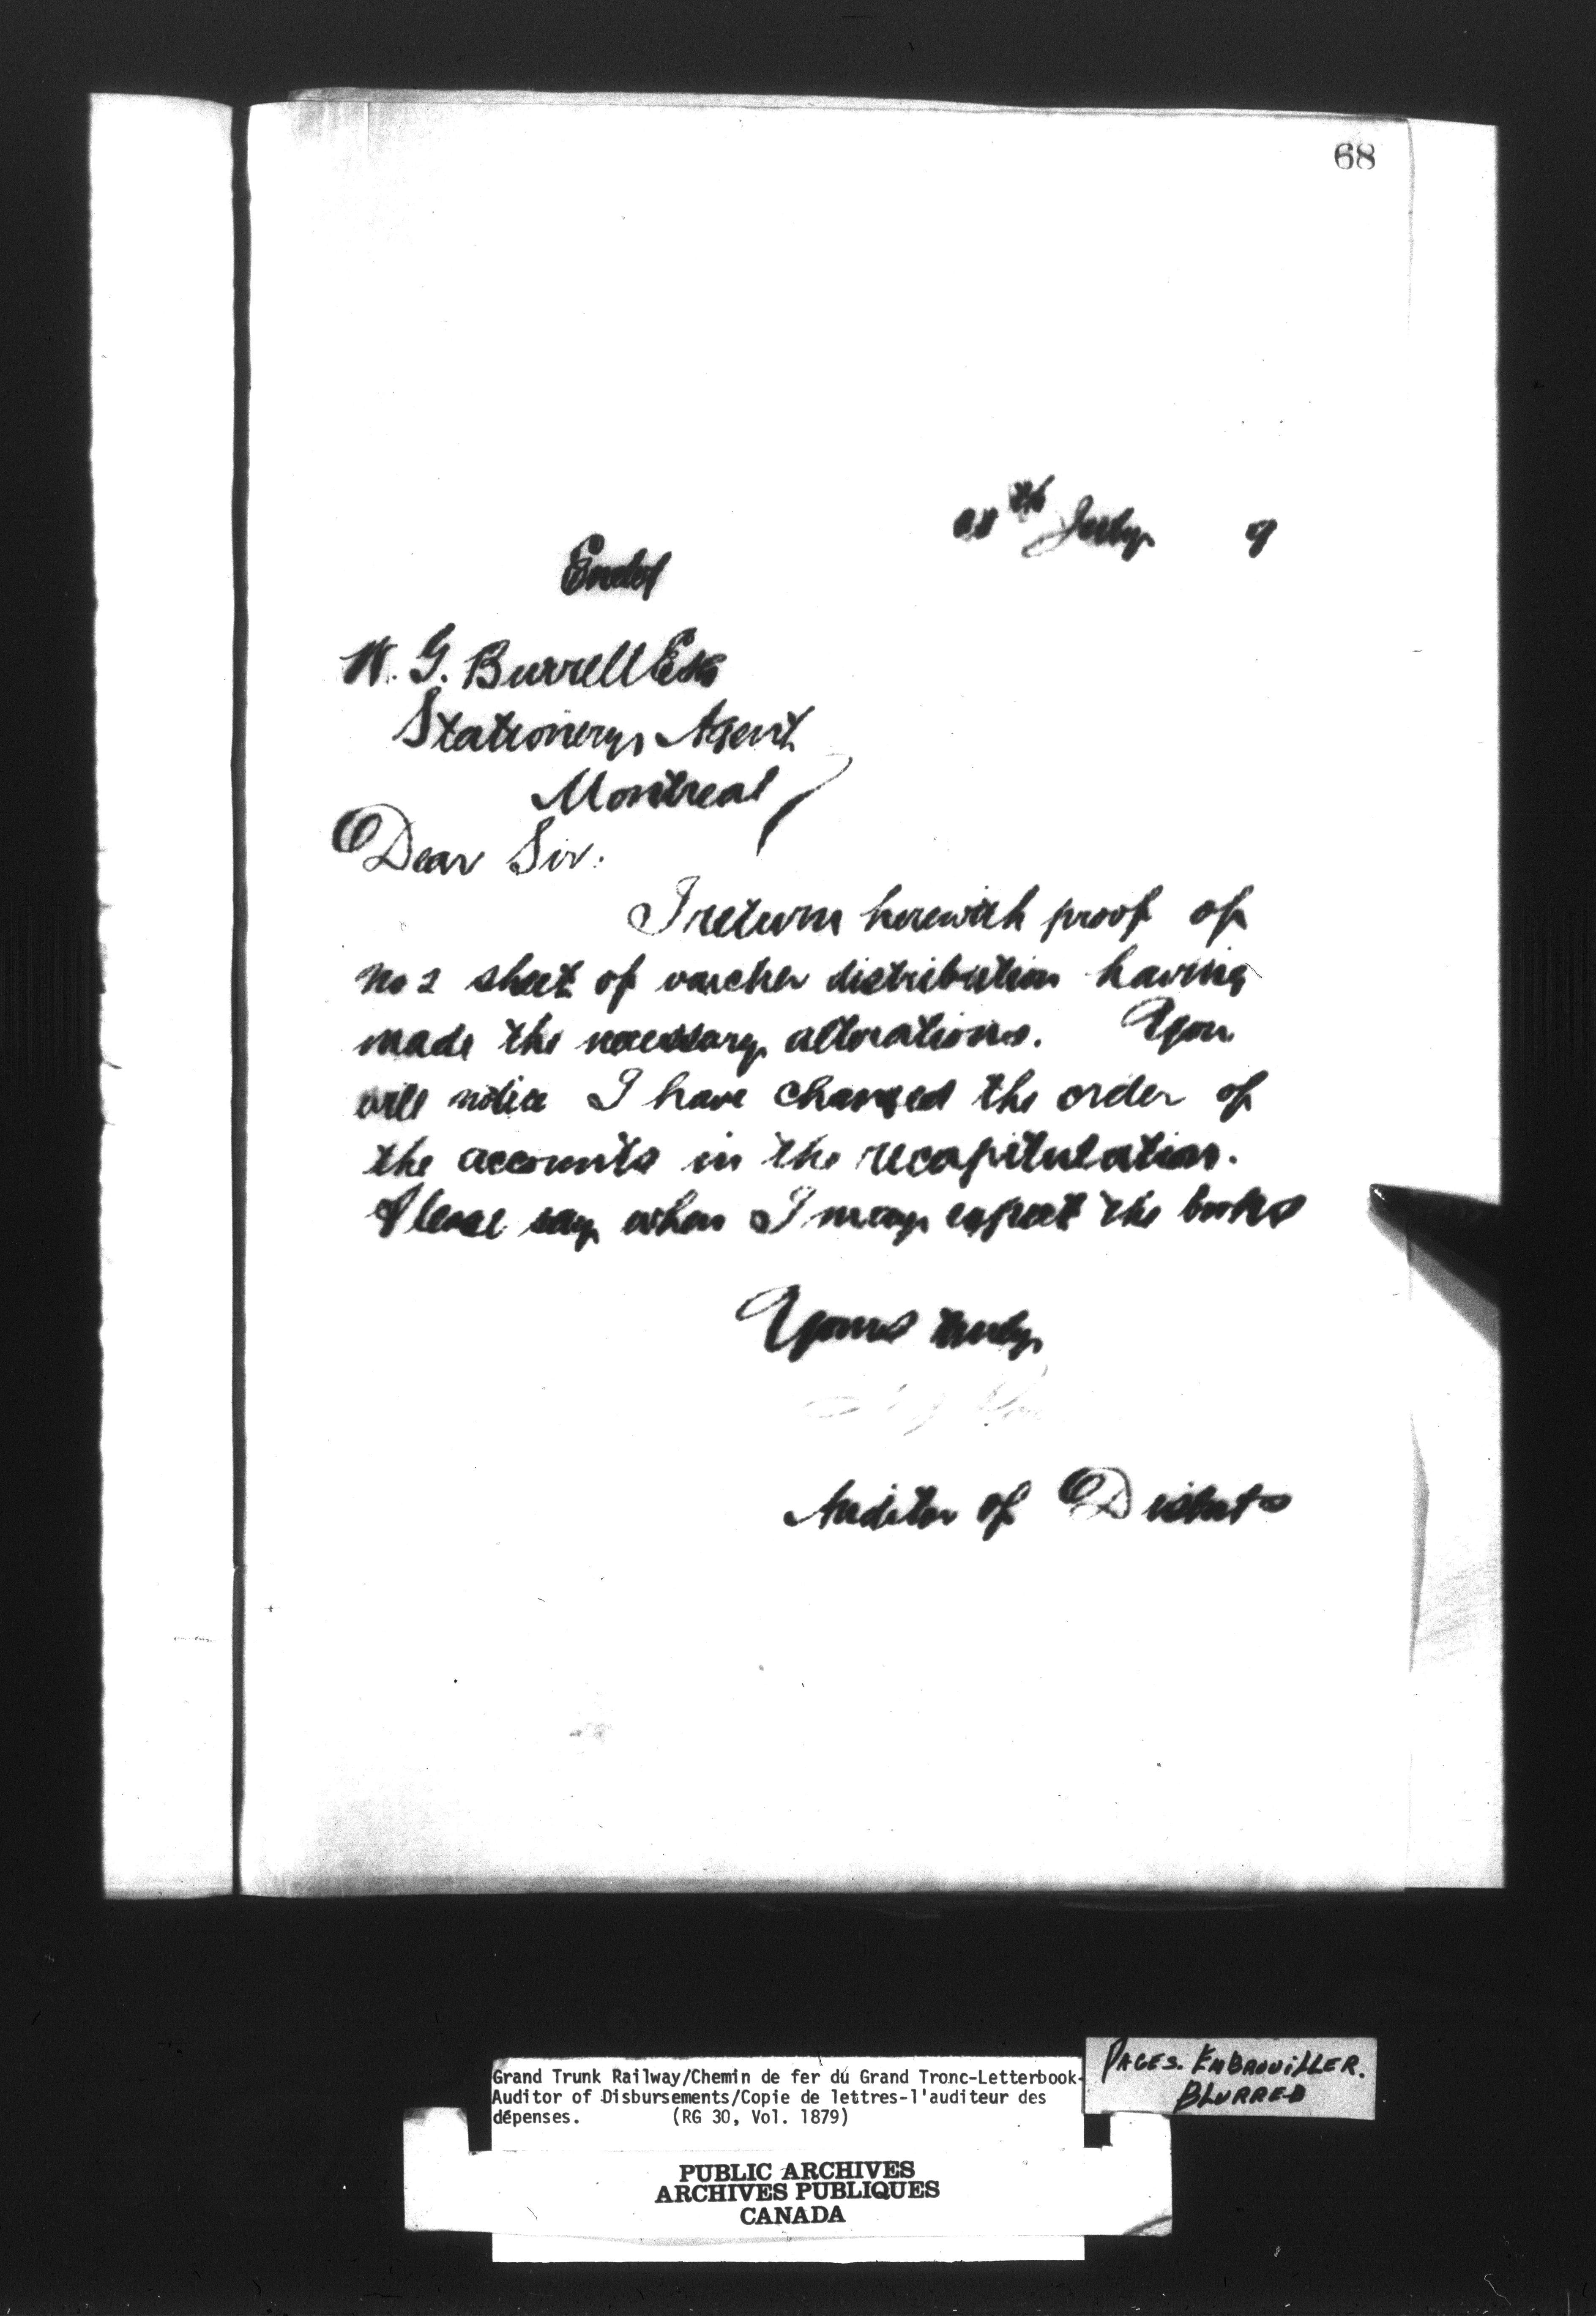 68
th July 9
W. G. Burrell Esq
Stationery Agent
Montreal
Dear Sir.
I return herewith proof of
No 2 sheet of voucher distribution having
made the necessary alterations. You
will notice I have changed the order of
the accounts in the recapitulation.
Please say when I may expect the books
Yours truly
Auditor of Disbts
Grand Trunk Railway/Chemin de fer du Grand Tronc-Letterbook-
Auditor of Disbursements/Copie de lettres-l'auditeur des
dépenses. (RG 30, Vol. 1879)
PAGES. EMBROUILLER.
BLURRED
PUBLIC ARCHIVES
ARCHIVES PUBLIQUES
CANADA